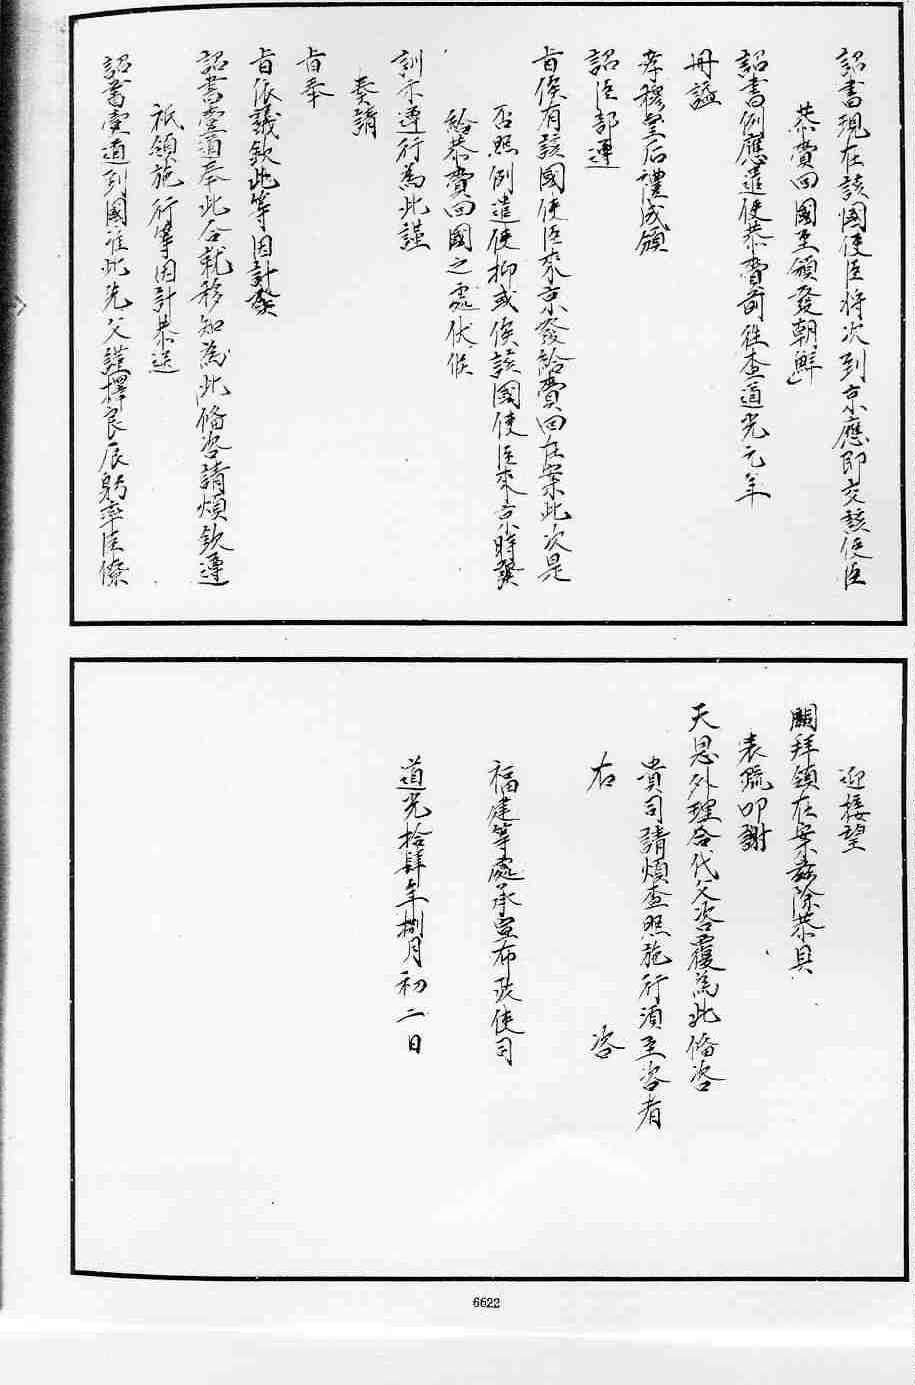 詔書現在該國使臣將次到京應即交該使臣
恭賫回國至頒發朝鮮
詔書例應遣使恭賫前徃查道光元年
冊謚
孝穆皇后禮成頒
詔臣部遵
旨俟有該國使臣來京發給賫回在案此次是
否照例遣使抑或俟該國使臣來京時發
給恭賫回國之處伏候
訓示遵行為此謹
奏請
旨奉
旨依議欽此等因計發
詔書壹道奉此合就移知為此備咨請煩欽遵
祇領施行等因計恭送
詔書壹道到國准此先父謹擇良辰躬率臣僚
迎接望
闕拜領在案茲除恭具
表疏叩謝
天恩外理合代父咨覆為此備咨
貴司請煩查照施行須至咨者
右 咨
福建等處承宣布政使司
道光拾肆年捌月初二日
6622